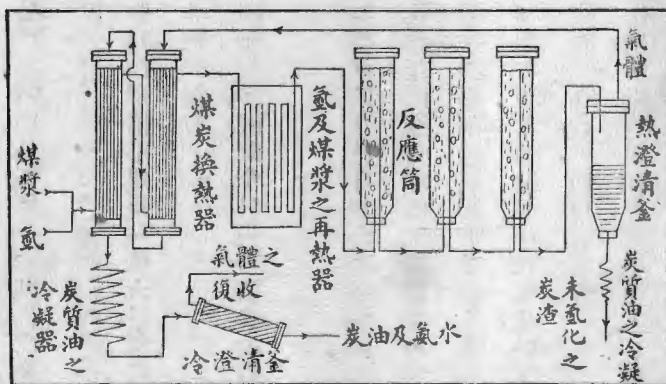 煤漿
氫
煤炭換熱器
氫及煤漿之再熱器
反應筒
氣體
熱澄清釜
炭質油之
冷凝器
氣體之
復收
冷澄清釜
炭油及氨水
未氫化之
炭渣
炭質油之冷凝